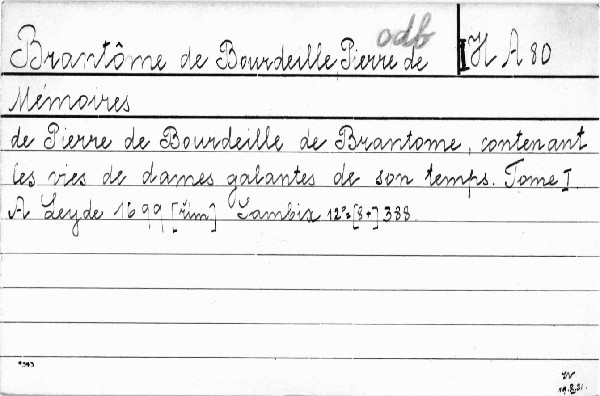 odb
Brantôme de Bourdeille Pierre de II H A 80
Mémoires
de Pierre de Bourdeille de Brantome, contenant
les vies de dames galantes de son temps. Tome I.
A Leyde 1699 [řím] Sambix 12° [8+] 388.